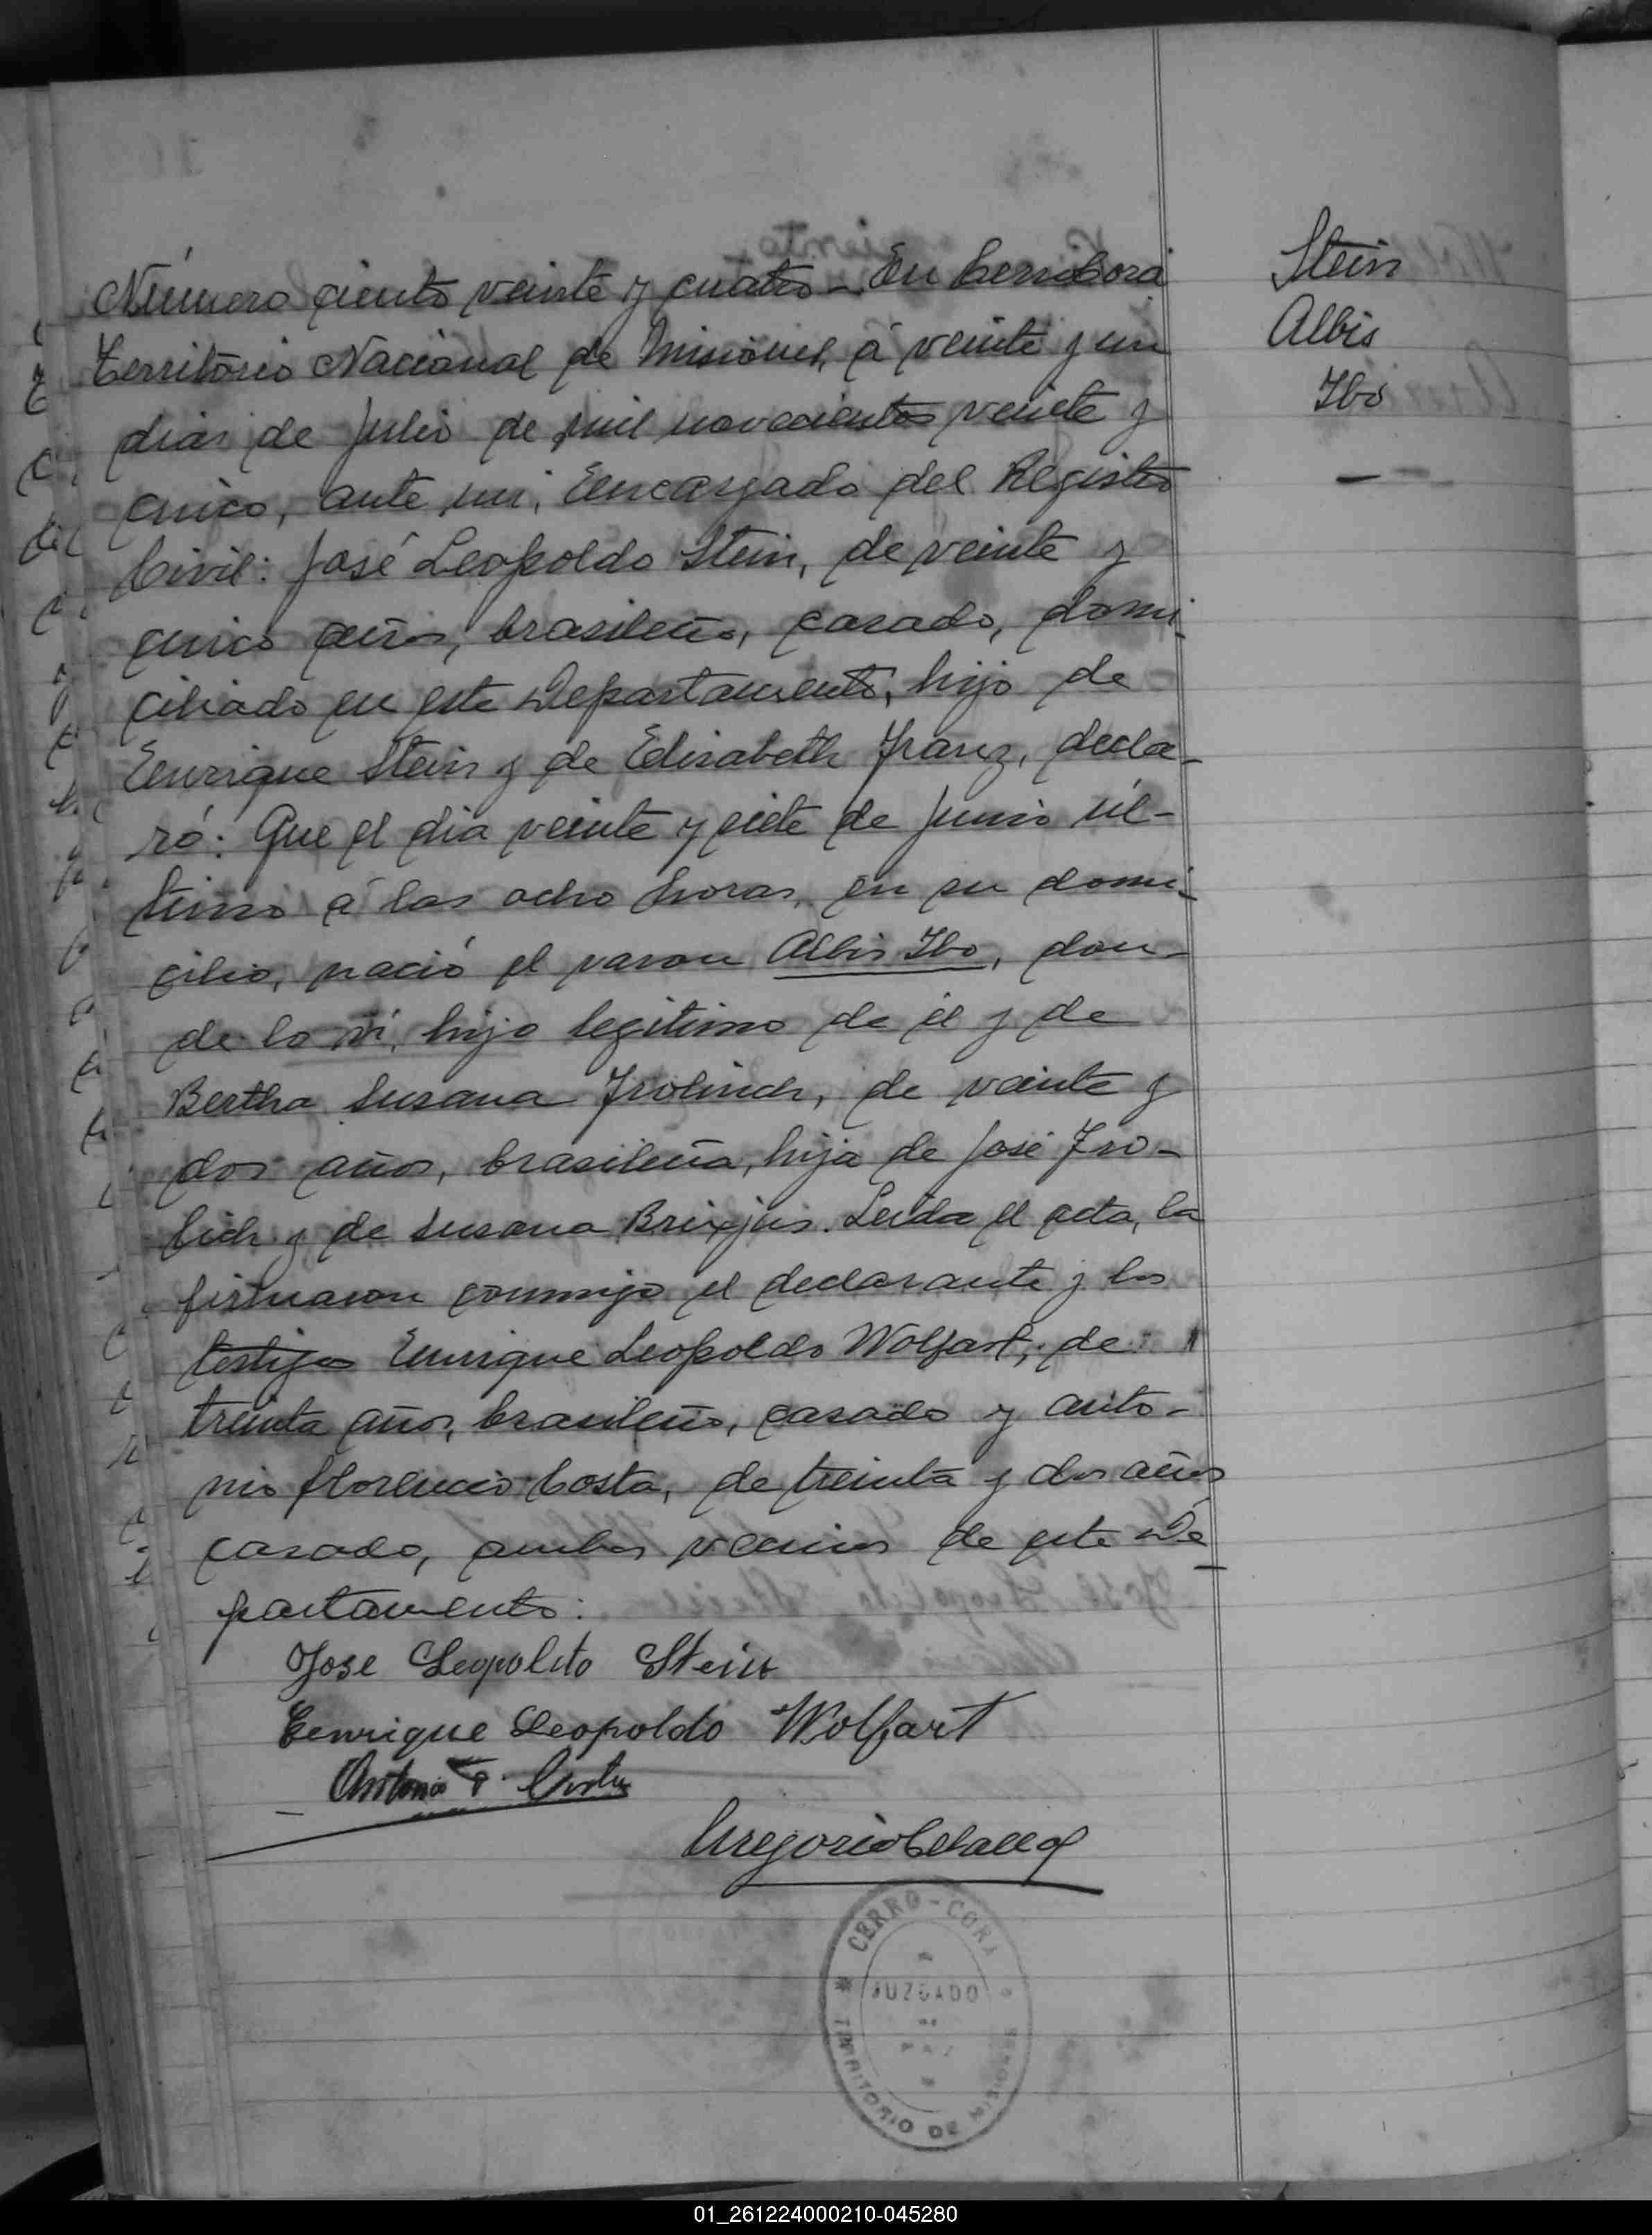 Número ciento veinte y cuatro - En Cerro Corá
Territorio Nacional de Misiones, á veinte y un
dias de Julio de mil novecientos veinte y
cinco, ante mi, Encargado del Registro
Civil: José Leopoldo Stein, de veinte y
cinco años, brasileño, casado, domi-
ciliado en este Departamento, hijo de
Enrique Stein y de Elisabeth Franz, decla-
ró: Que el dia veinte y siete de Junio úl-
timo á las ocho horas, en su domi-
cilio, nació el varon Albis Ibo, don-
de lo vi, hijo legitimo de él y de
Bertha Susana Frolinch, de veinte y
dos años, brasileña, hija de José Fro-
lich y de Susana. Leida el acta, la
firmaron conmigo el declarante y los
testigos Enrique Leopoldo Wolfart, de
treinta años, brasileño, casado y Anto-
nio Florencio Costa, de treinta y dos años
casado, ambos vecinos de este De
partamento:
Jose Leopoldo Stein
Enrique Leopoldo Wolfart
Antonio F. Costa
Gregorio
CERRO-CORA
JUZGADO
DE
PAZ
TERRITORIO DE MISIONES
Stein
Albis
Ibo
01_261224000210-045280